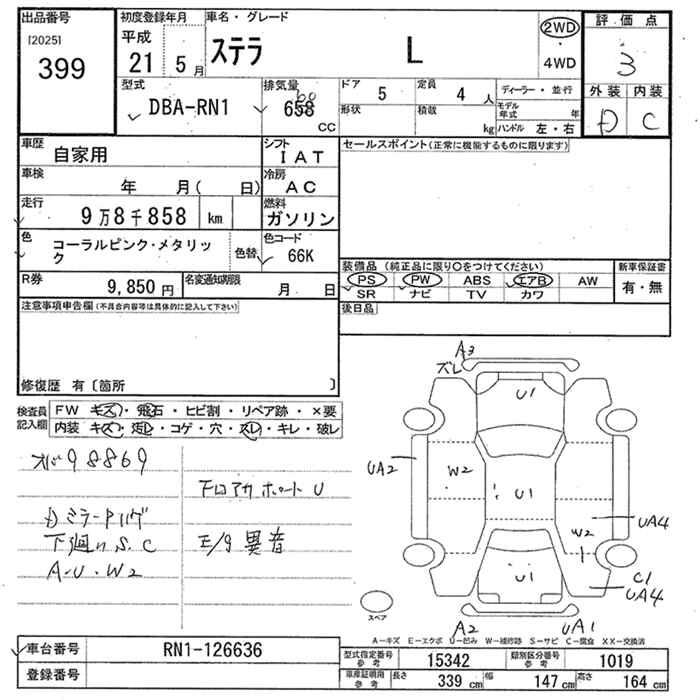 出品番号
[2025]
399
初度登録年月
平成
21 5月
車名・グレード
ステラ L
2WD
・
4WD
評価点
3
外装 内装
D C
型式
DBA-RN1
排気量
658
660
CC
ドア 5
定員 4人
形状
積載 kg
ディーラー・並行
モデル年式 年
ハンドル 左・右
車歴
自家用
シフト
IAT
車検
年 月( 日)
冷房
AC
走行
9万8千858 km
燃料
ガソリン
色
コーラルピンク・メタリック
色替
色コード
66K
R券
9,850円
名変通知期限
月 日
セールスポイント(正常に機能するものに限ります)
装備品(純正品に限り○をつけてください)
PS PW ABS エアB AW
SR ナビ TV カワ
新車保証書
有・無
後日品
注意事項申告欄(不具合内容等は具体的に記入して下さい)
修復歴 有〔箇所 〕
検査員記入欄
FW キズ・飛石・ヒビ割・リペア跡・×要
内装 キズ・汚レ・コゲ・穴・スレ・キレ・破レ
オバ98869
Dミラーウレハゲ
下廻りS.C
A-U・W2
E/g異音
A3
ズレ
U1
UA2
W2
U1
UA4
W2
U1
C1
UA4
A2
UA1
スペア
A-キズ E-エクボ U-凹み W-補修跡 S-サビ C-腐食 XX-交換済
車台番号
RN1-126636
登録番号
型式指定番号参考
15342
類別区分番号参考
1019
車庫証明用参考
長さ 339cm 幅 147cm 高さ 164cm